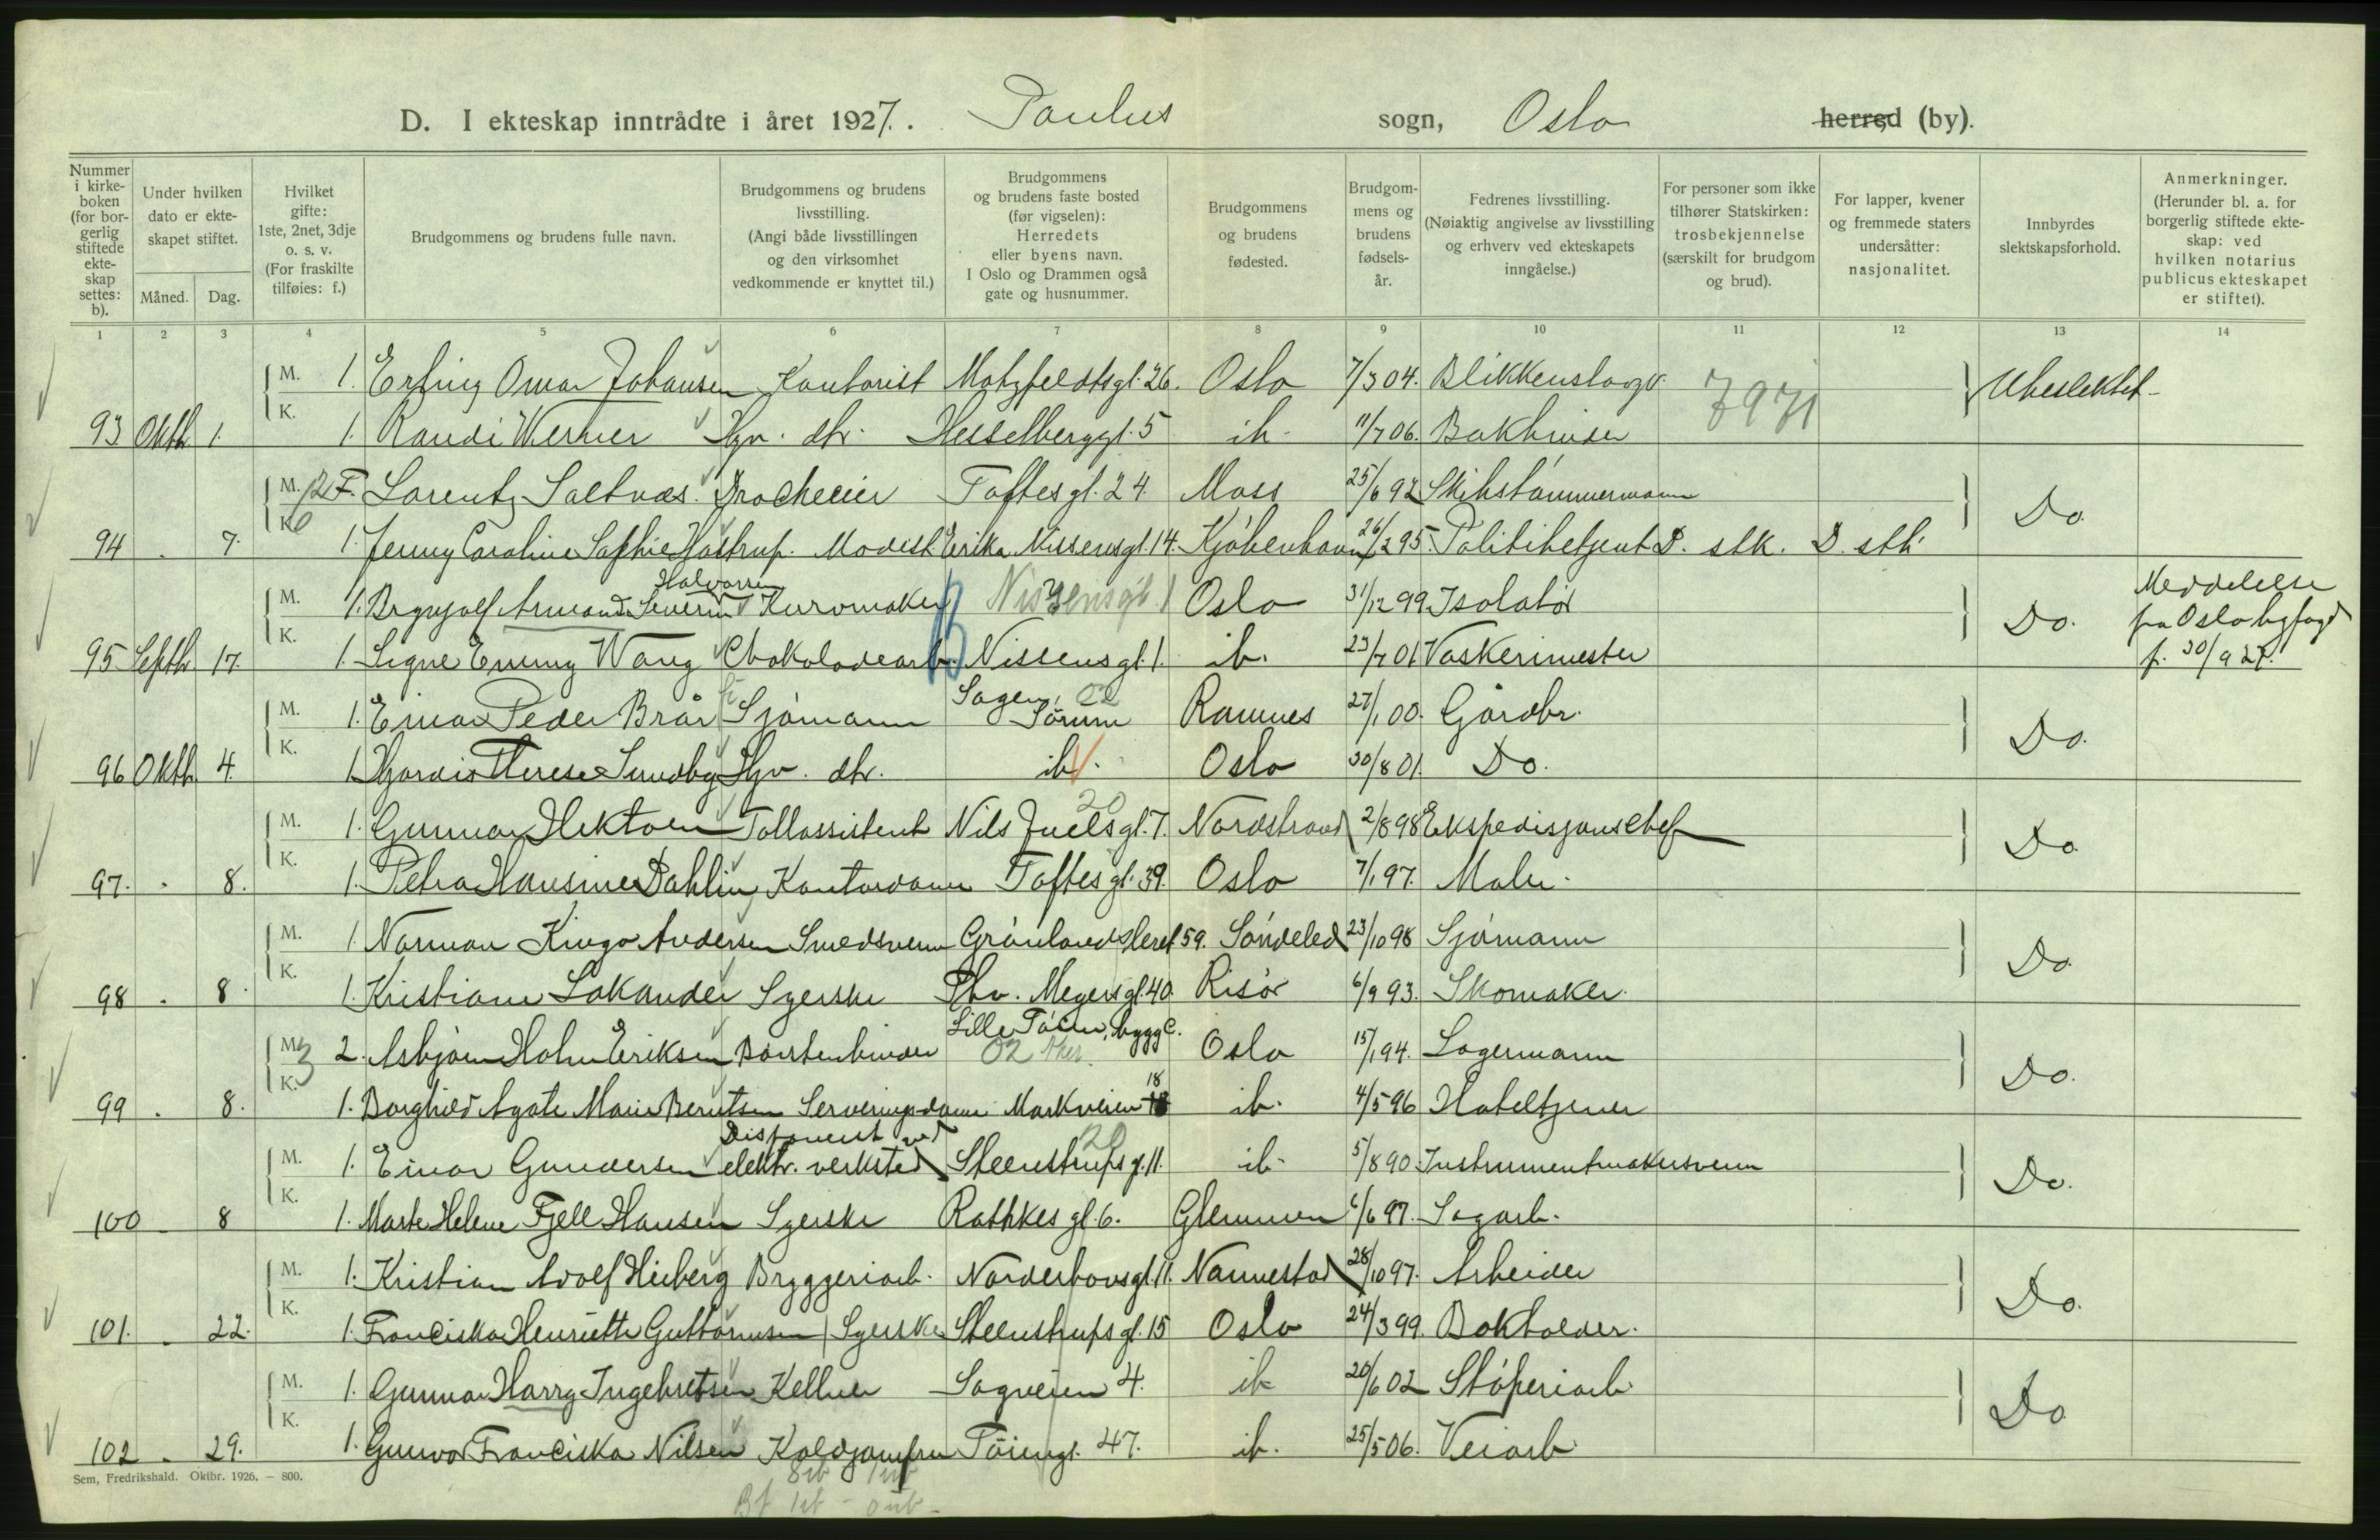 D. I ekteskap inntrådte i året 1927. Paulus sogn, Oslo herred (by).
Nummer i kirkeboken (for borgerlig stiftede ekteskap settes: b).
Under hvilken dato er ekteskapet stiftet.
Måned. Dag.
Hvilket gifte: 1ste, 2net, 3dje o. s. v. (For fraskilte tilføies: f.)
Brudgommens og brudens fulle navn.
Brudgommens og brudens livsstilling. (Angi både livsstillingen og den virksomhet vedkommende er knyttet til.)
Brudgommens og brudens faste bosted (før vigselen): Herredets eller byens navn. I Oslo og Drammen også gate og husnummer.
Brudgommens og brudens fødested.
Brudgommens og brudens fødselsår.
Fedrenes livsstilling. (Nøiaktig angivelse av livsstilling og erhverv ved ekteskapets inngåelse.)
For personer som ikke tilhører Statskirken: trosbekjennelse (særskilt for brudgom og brud).
For lapper, kvener og fremmede staters undersåtter: nasjonalitet.
Innbyrdes slektskapsforhold.
Anmerkninger. (Herunder bl. a. for borgerlig stiftede ekteskap: ved hvilken notarius publicus ekteskapet er stiftet).
1 2 3 4 5 6 7 8 9 10 11 12 13 14
M. 1. Erling Omar Johansen Kontorist Motzfeldtsgt. 26. Oslo 7/3 04. Blikkenslager 7971 Ubeslektet
93 Oktb. 1. K. 1. Randi Werner Hgv. dtr. Hesselberggt. 5 ib. 11/7 06. Bokbinder
M. 2 F. Lorentz Saltnes. Dracheeier Toftesgt. 24. Moss 25/6 92 Skibstømmermann Do.
94 . 7. K. 1. Jenny Caroline Sophie Hastrup. Modist Erika Nissensgt. 14. Kjøbenhavn 26/2 95. Politibetjent D. stk. D. stb.
Halvorsen Meddelelse
M. 1. Brynjolf Armand Severin Kurvmaker Nissensgt. 1 Oslo 31/12 99 Isolatør Do. fra Oslo byfogd
95 Septb. 17. K. 1. Signe Emmy Wang Chokoladearb. Nissensgt. 1. ib. 23/7 01 Vaskerimester f. 30/9 27.
Sagen, 02
M. 1. Einar Peder Brår Sjømann Sørum Ramnes 27/1 00. Gårdbr. Do.
96 Oktb. 4. K. 1. Hjordis Therese Sundby Hgv. dtr. ib. Oslo 30/8 01. Do.
20
M. 1. Gunnar Hektoen Tollassistent Nils Juelsgt. 7. Nordstrand 2/8 98 Ekspedisjonschef Do.
97. . 8. K. 1. Petra Hansine Dahlin Kontordame Toftesgt. 39. Oslo 7/1 97. Maler.
M. 1. Norman Kingo Andersen Smedsvenn Grønlandsleret 59. Søndeled 23/10 98 Sjømann Do.
98 . 8. K. 1. Kristiane Lokander Syerske Thv. Meyersgt. 40. Risør 6/9 93. Skomaker.
Lille Tøien, bygg C.
M. 3 2. Asbjørn Holm Eriksen Børstenbinder 02 Oslo 15/1 94. Lagermann Do.
99 . 8. K. 1. Borghild Agate Marie Berntsen Serveringsdame Markveien 18 ib. 4/5 96 Hoteltjener
Disponent ved 20
M. 1. Einar Gundersen elektr. verksted Steenstrupsg. 11. ib. 5/8 90. Instrumentmakersvenn Do.
100 . 8 K. 1. Marte Helene Fjell Hansen Syerske Rathkesgt. 6. Glemmen 6/6 97. Sagarb.
M. 1. Kristian Adolf Hieberg Bryggeriarb. Norderhovsgt. 11. Nannestad 28/10 97. Arbeider Do.
101. . 22. K. 1. Franciska Henriette Guttormsen Syerske Steenstrupsgt. 15 Oslo 24/3 99. Bokholder.
M. 1. Gunnar Harry Ingebretsen Kellner Sagveien 4. ib 20/6 02 Støperiarb. Do
102 . 29. K. 1. Gunvor Franciska Nilsen Koldjomfru Tøiengt. 47. ib. 25/5 06. Veiarb.
Sem, Fredrikshald. Oktbr. 1926. — 800.